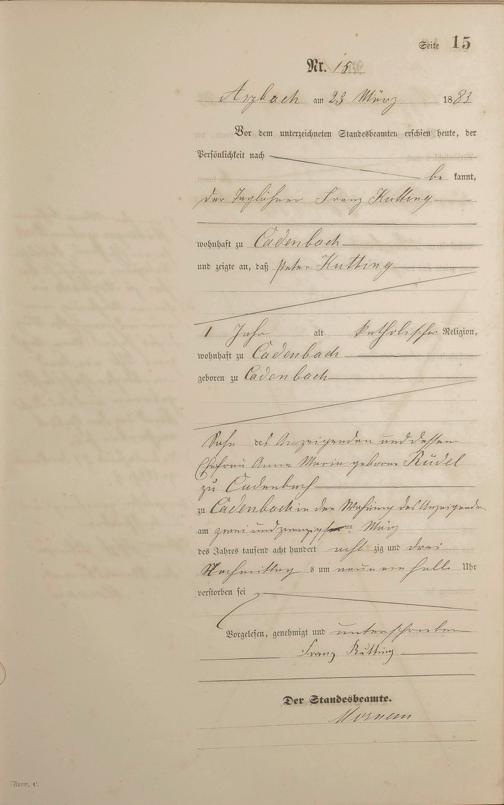 Seite 15
Nr. 15
Arzbach am 23 März 1883
Vor dem unterzeichneten Standesbeamten erschien heute, der
Persönlichkeit nach
be kannt,
der Taglöhner Franz Kutting
wohnhaft zu Cadenbach
und zeigte an, daß Peter Kutting
1 Jahr alt katholischer Religion,
wohnhaft zu Cadenbach
geboren zu Cadenbach
Sohn des Anzeigenden und dessen
Ehefrau Anna Maria geborne Rüdel
zu Cadenbach
zu Cadenbach in der Wohnung des Anzeigenden
am zwei und zwanzigsten März
des Jahres tausend acht hundert acht zig und drei
Nachmittag s um neun ein halb Uhr
verstorben sei
Vorgelesen, genehmigt und unterschrieben
Franz Kutting
Der Standesbeamte.
Form. C.